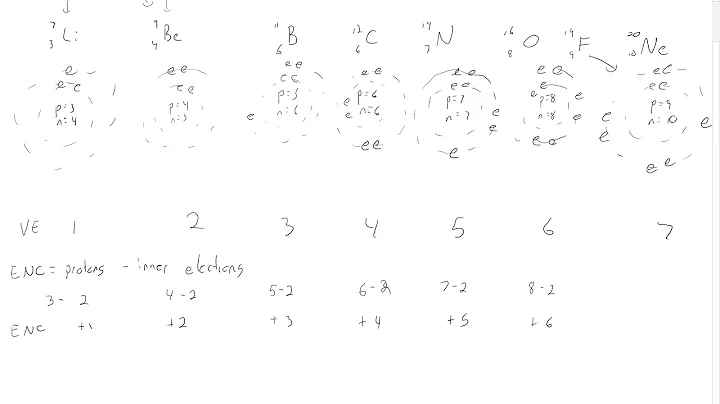 7 3 Li 9 4 Be 11 6 B 12 6 C 14 7 N 16 8 O 19 9 F 20 10 Ne
e e e e e e e e e e e e e e
e e e e e e e e e e e e
p=3 p=4 p=5 p=6 p=7 p=8 p=9
n=4 n=5 n=6 n=6 n=7 n=8 n=10
e e e e e e e e e
e e e e e e e
VE 1 2 3 4 5 6 7
ENC = protons - inner electrons
3 - 2 4 - 2 5-2 6-2 7-2 8-2
ENC +1 +2 +3 +4 +5 +6